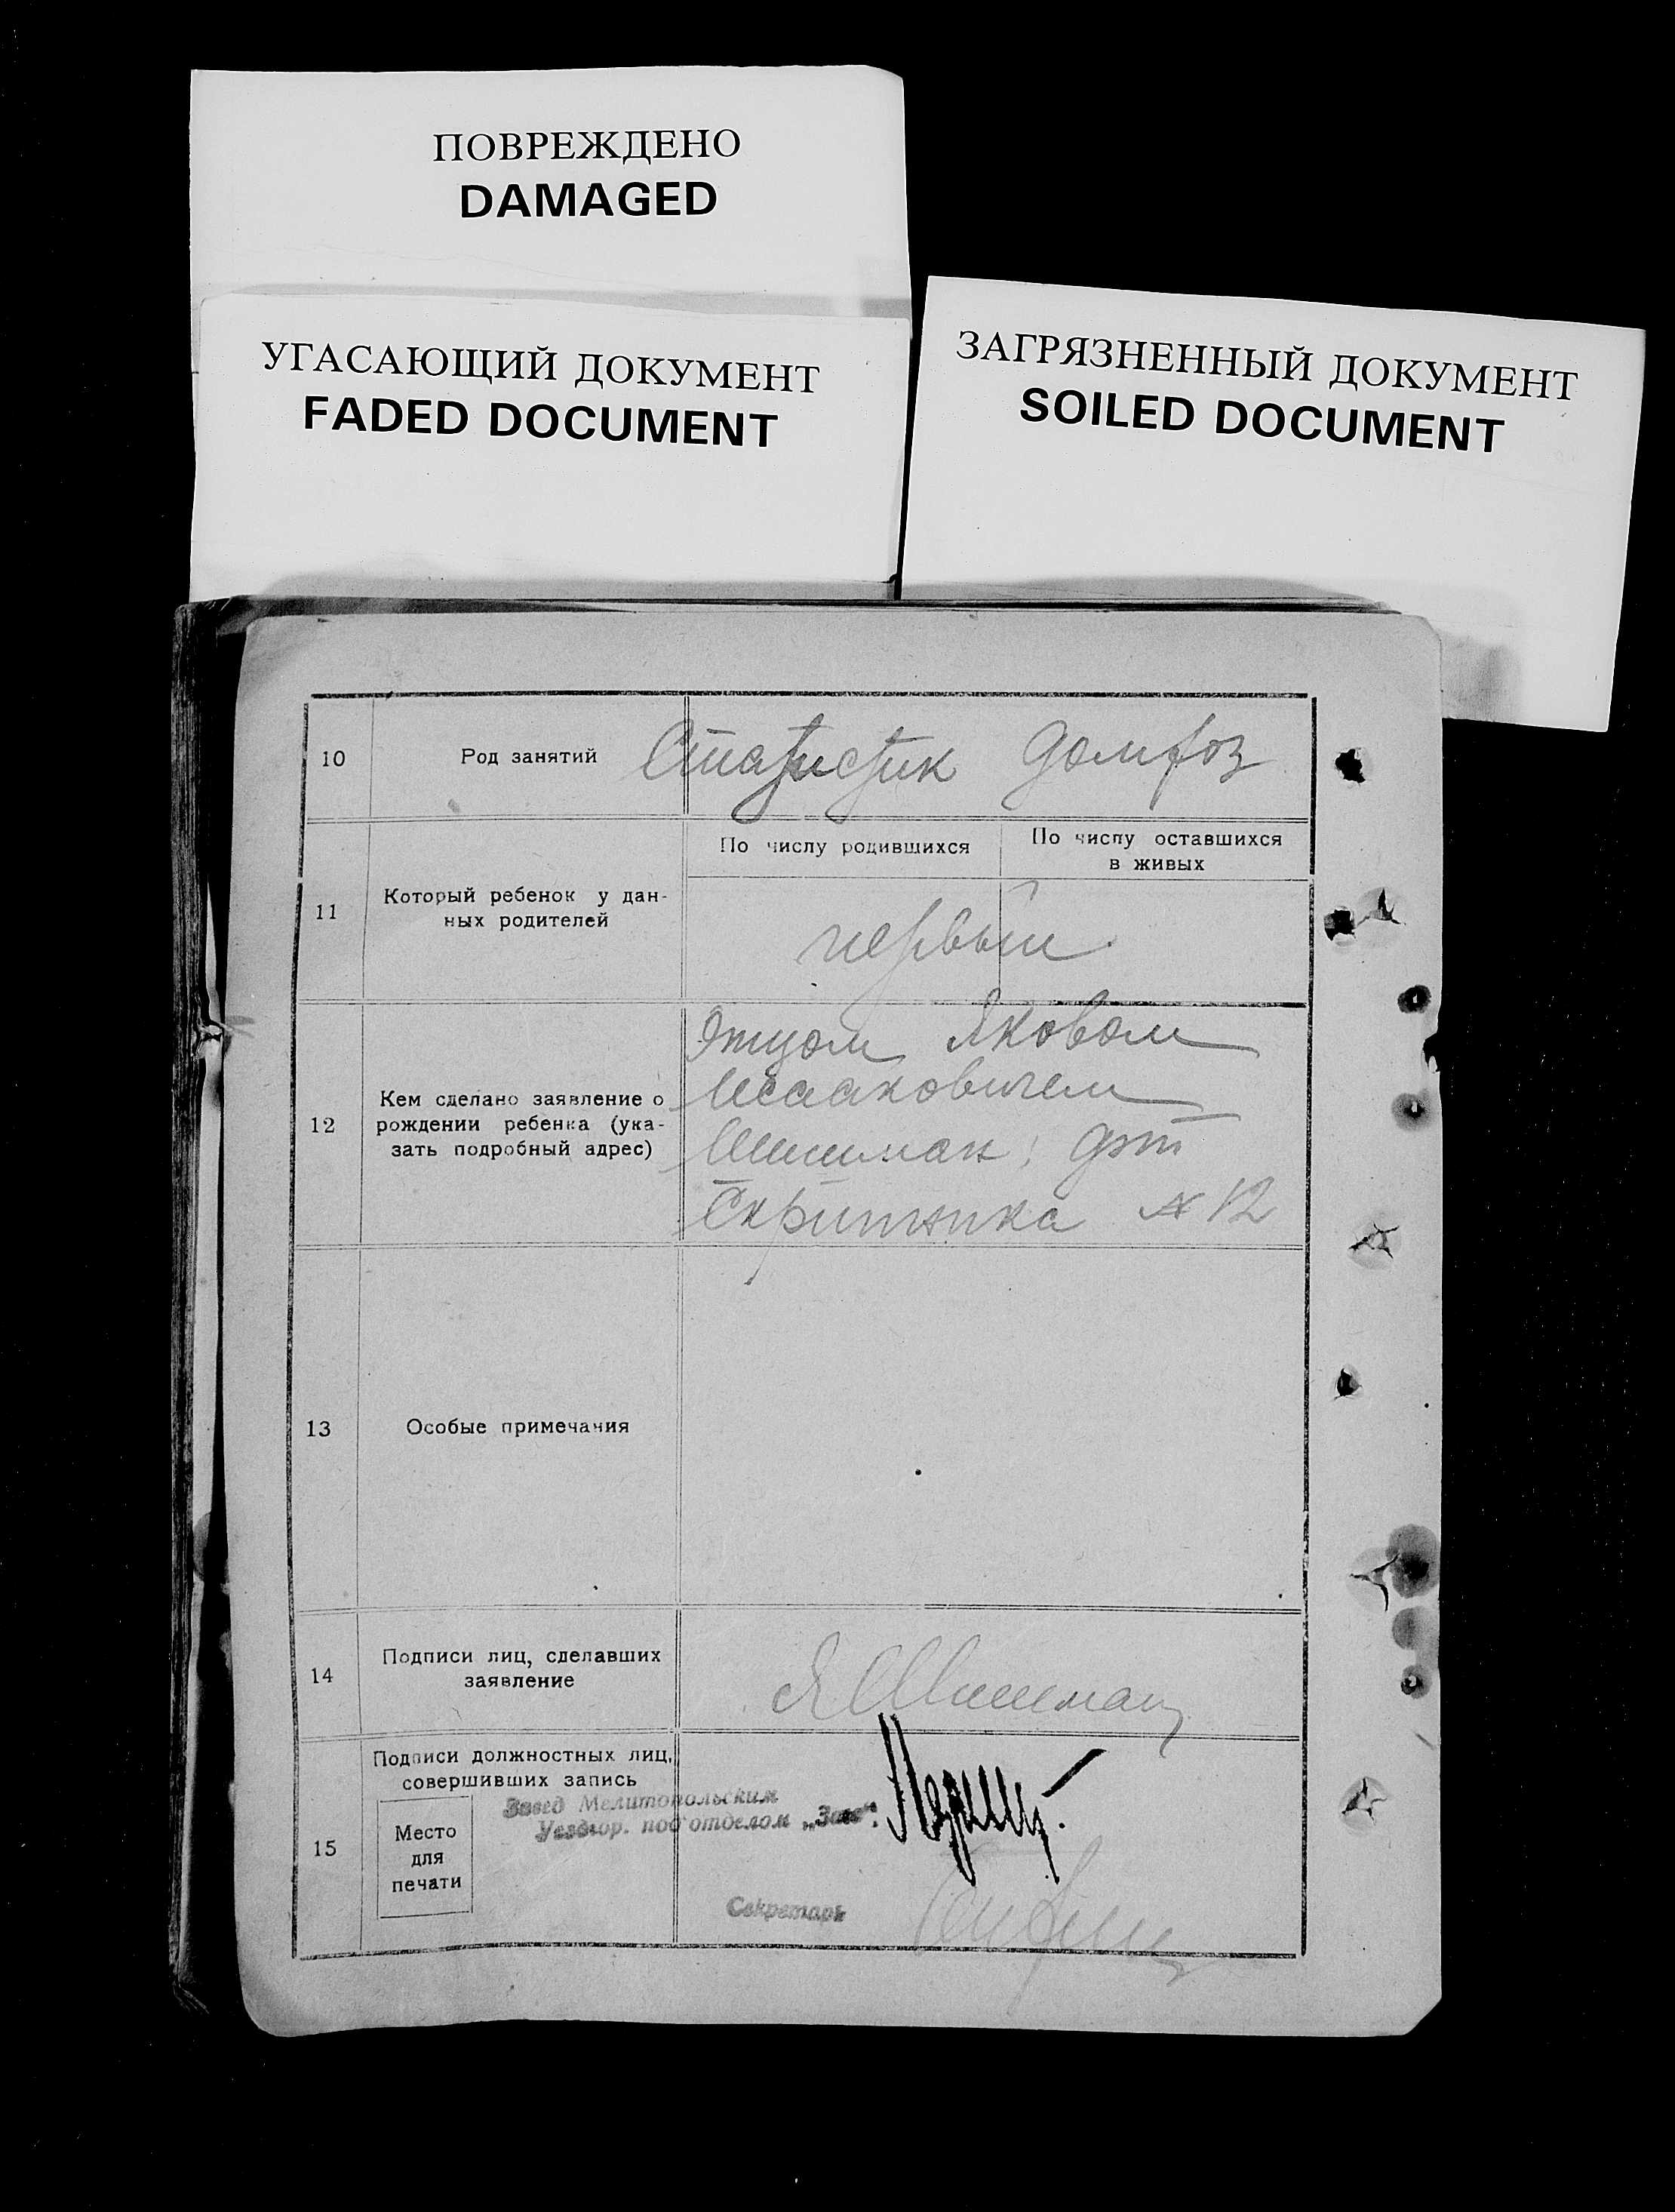 ПОВРЕЖДЕНО
DAMAGED
УГАСАЮЩИЙ ДОКУМЕНТ
FADED DOCUMENT
ЗАГРЯЗНЕННЫЙ ДОКУМЕНТ
SOILED DOCUMENT
10
Род занятий
Статистик
11
Который ребенок у дан-
ных родителей
По числу родившихся
По числу оставшихся
в живых
первый
12
Кем сделано заявление о
рождении ребенка (ука-
зать подробный адрес)
Отцом Яковом
Исааковичем
Шишман
№ 12
13
Особые примечания
14
Подписи лиц, сделавших
заявление
Я Шишман
15
Подписи должностных лиц,
совершивших запись
Место
для
печати
Завед Мелитопольским
Уездгор. под'отделом „Загс“.
Секретарь